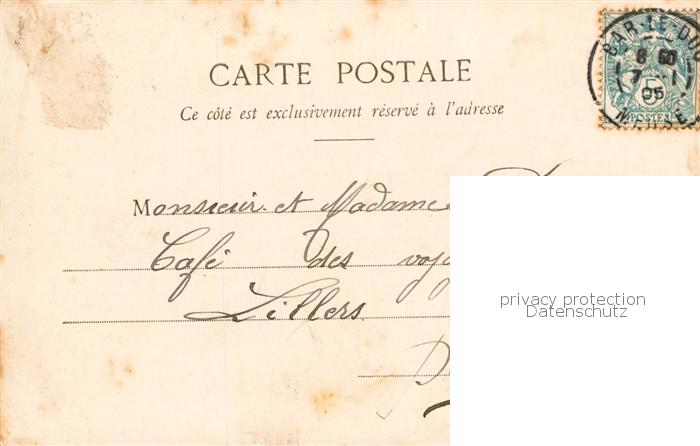 CARTE POSTALE
Ce côté est exclusivement réservé à l'adresse
BAR-LE-DUC
8 50
7 - 1
05
MEUSE
5
POSTES
Monsieur et Madame
Café des
Lillers
privacy protection
Datenschutz